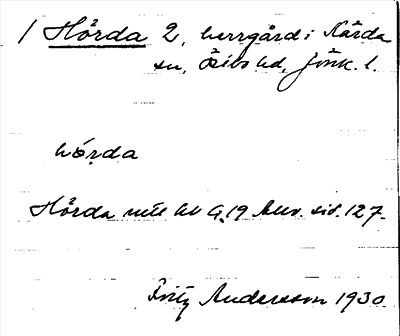 / Hörda 2, herrgård i Kärda
sn, Östbo hd, Jönk. l.
hó̤rda
Hörda mtl GG 19 Anv. sid. 127.
Fritz Andersson 1930.